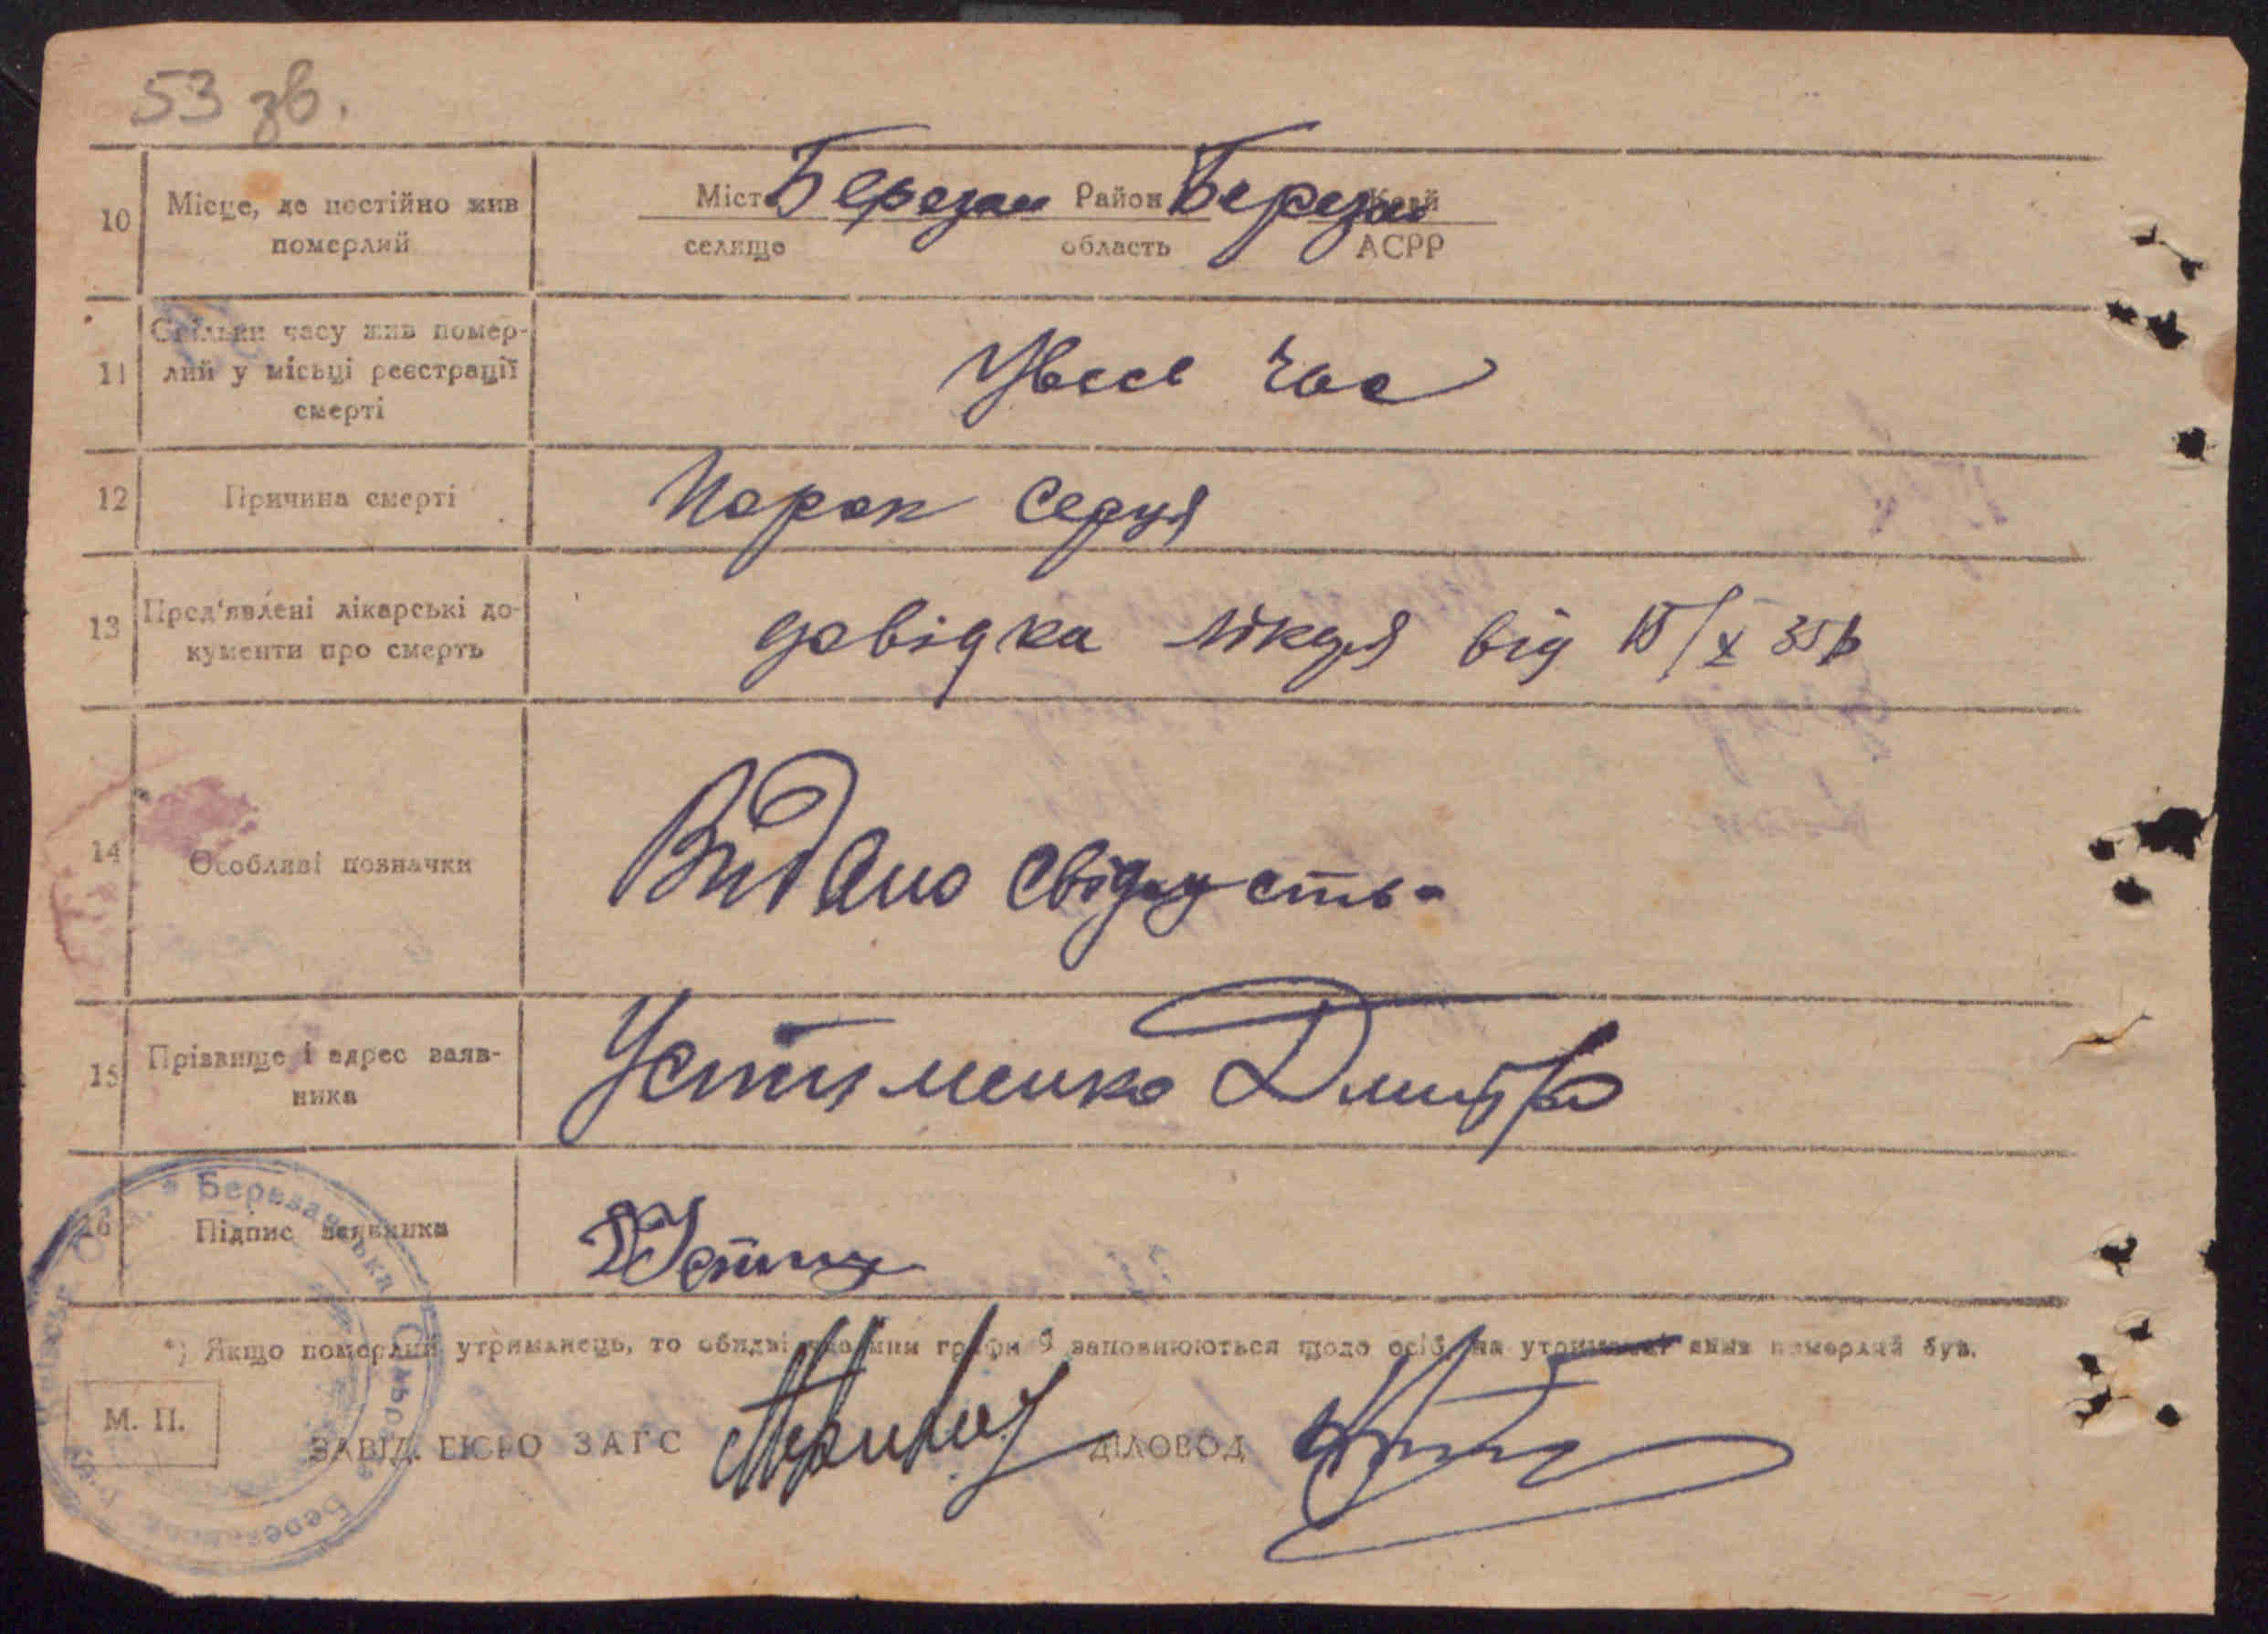 53 зв.
10 Місце, де постійно жив померлий
Місто Березан Район Березан Край
селище область АСРР
11 Скільки часу жив помер-
лий у місці реєстрації
смерті
Увесь час
12 Причина смерті Порок серця
13 Пред'явлені лікарські до-
кументи про смерть
довідка лікаря від 15/X 35 р
14 Особливі позначки
Видано свідоцтв-
15 Прізвище і адрес заяв-
ника
Устименко Дмитро
16 Підпис заявника
*) Якщо померлий утриманець, то обидві графи 9 заповнюються щодо осіб, на утриманні яких померлий був.
М. П.
ЗАВІД. БЮРО ЗАГС ДІЛОВОД
Березанська Сільс